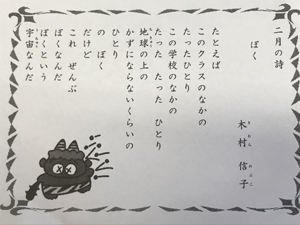 二月の詩
ぼく
木村 信子
きむら のぶこ
たとえば
このクラスのなかの
たったひとり
この学校のなかの
たった たった ひとり
地球の上の
かずにならないくらいの
ひとり
の ぼく
だけど
これ ぜんぶ
ぼくなんだ
ぼくという
宇宙なんだ